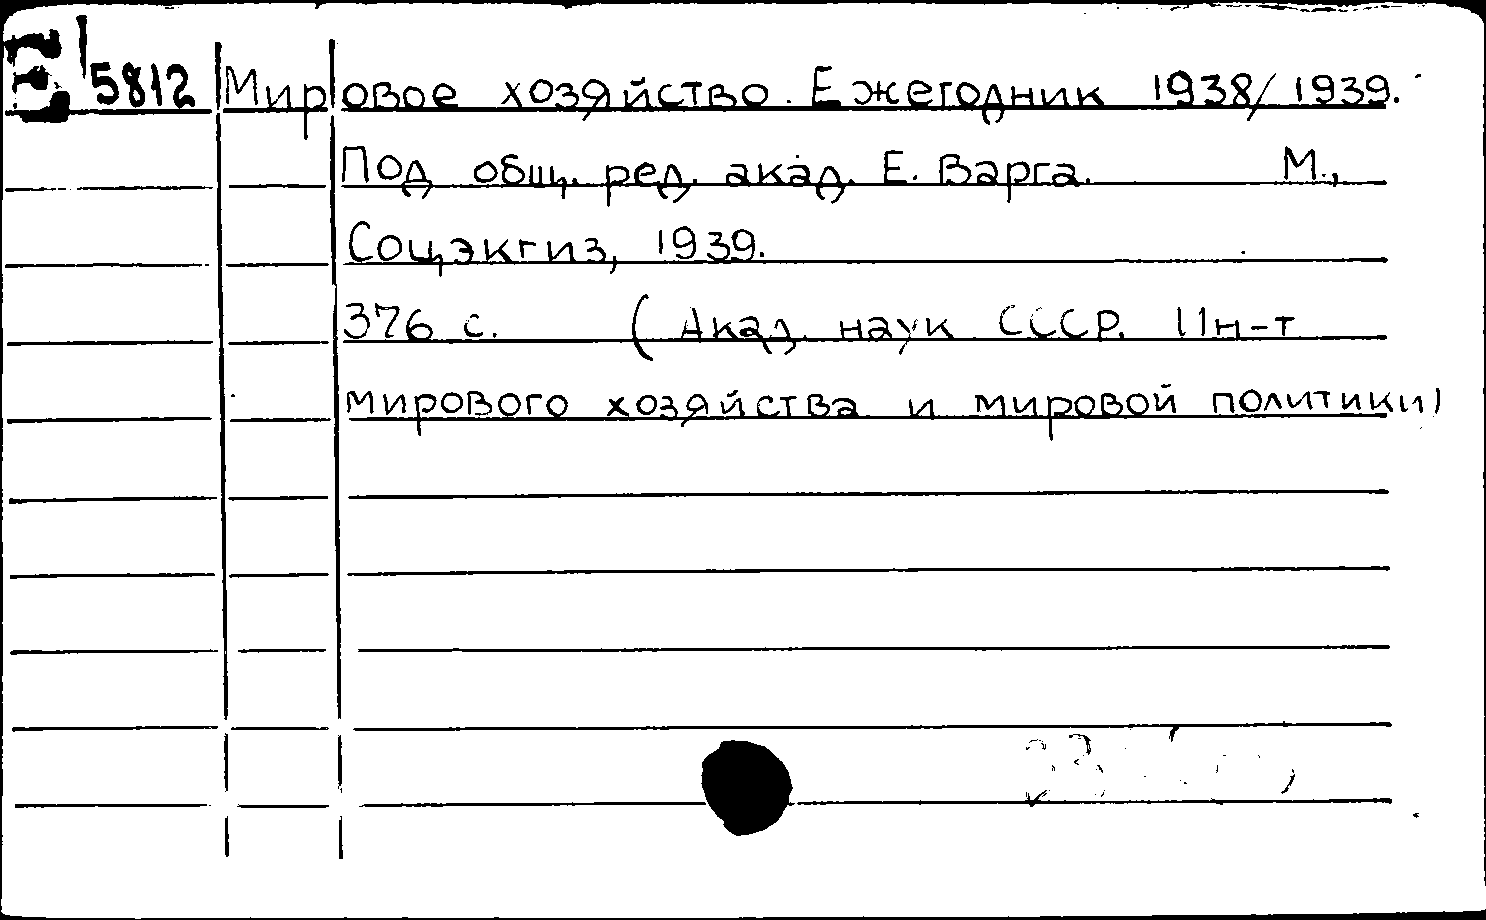 Е 5812 Мировое хозяйство. Ежегодник 1938/1939.
Под общ. ред. акад. Е. Варга. М.,
Соцэкгиз, 1939.
376 с. (Акад. наук СССР. Ин-т
мирового хозяйства и мировой политики)